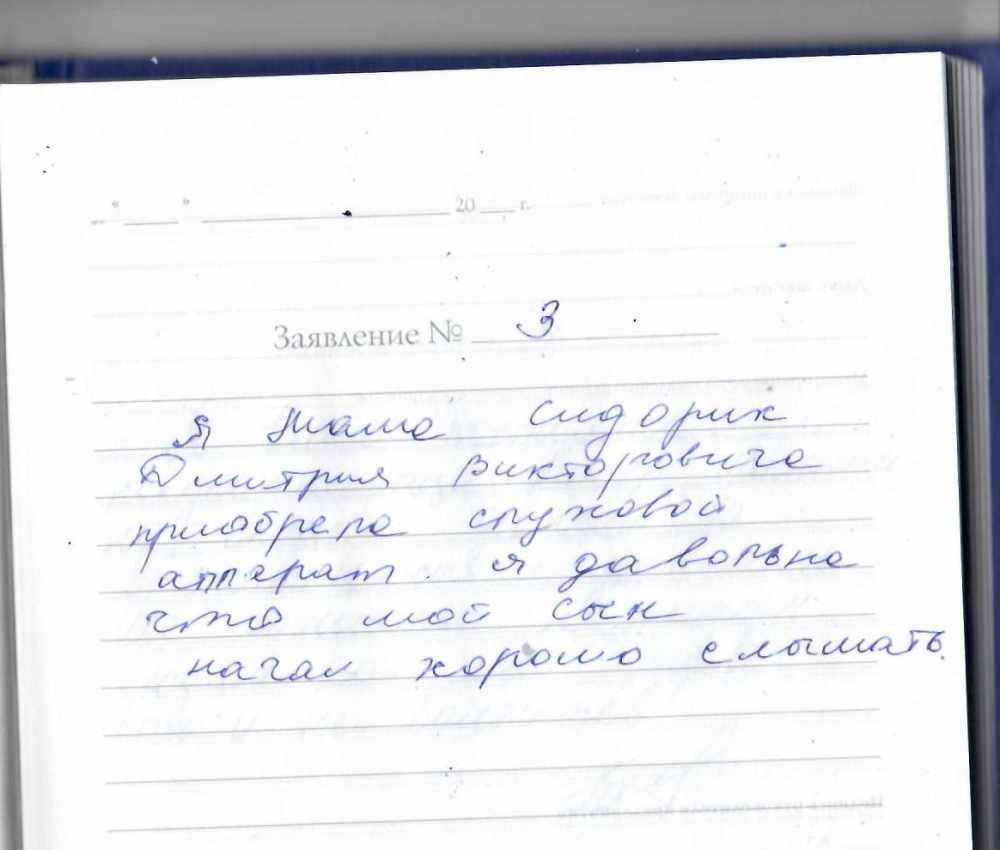 " " 20 г.
Заявление № 3
Я мама Сидорик
Дмитрия Викторовича
приабрела слуховой
аппарат. я давольна
что мой сын
начал хорошо слышать.